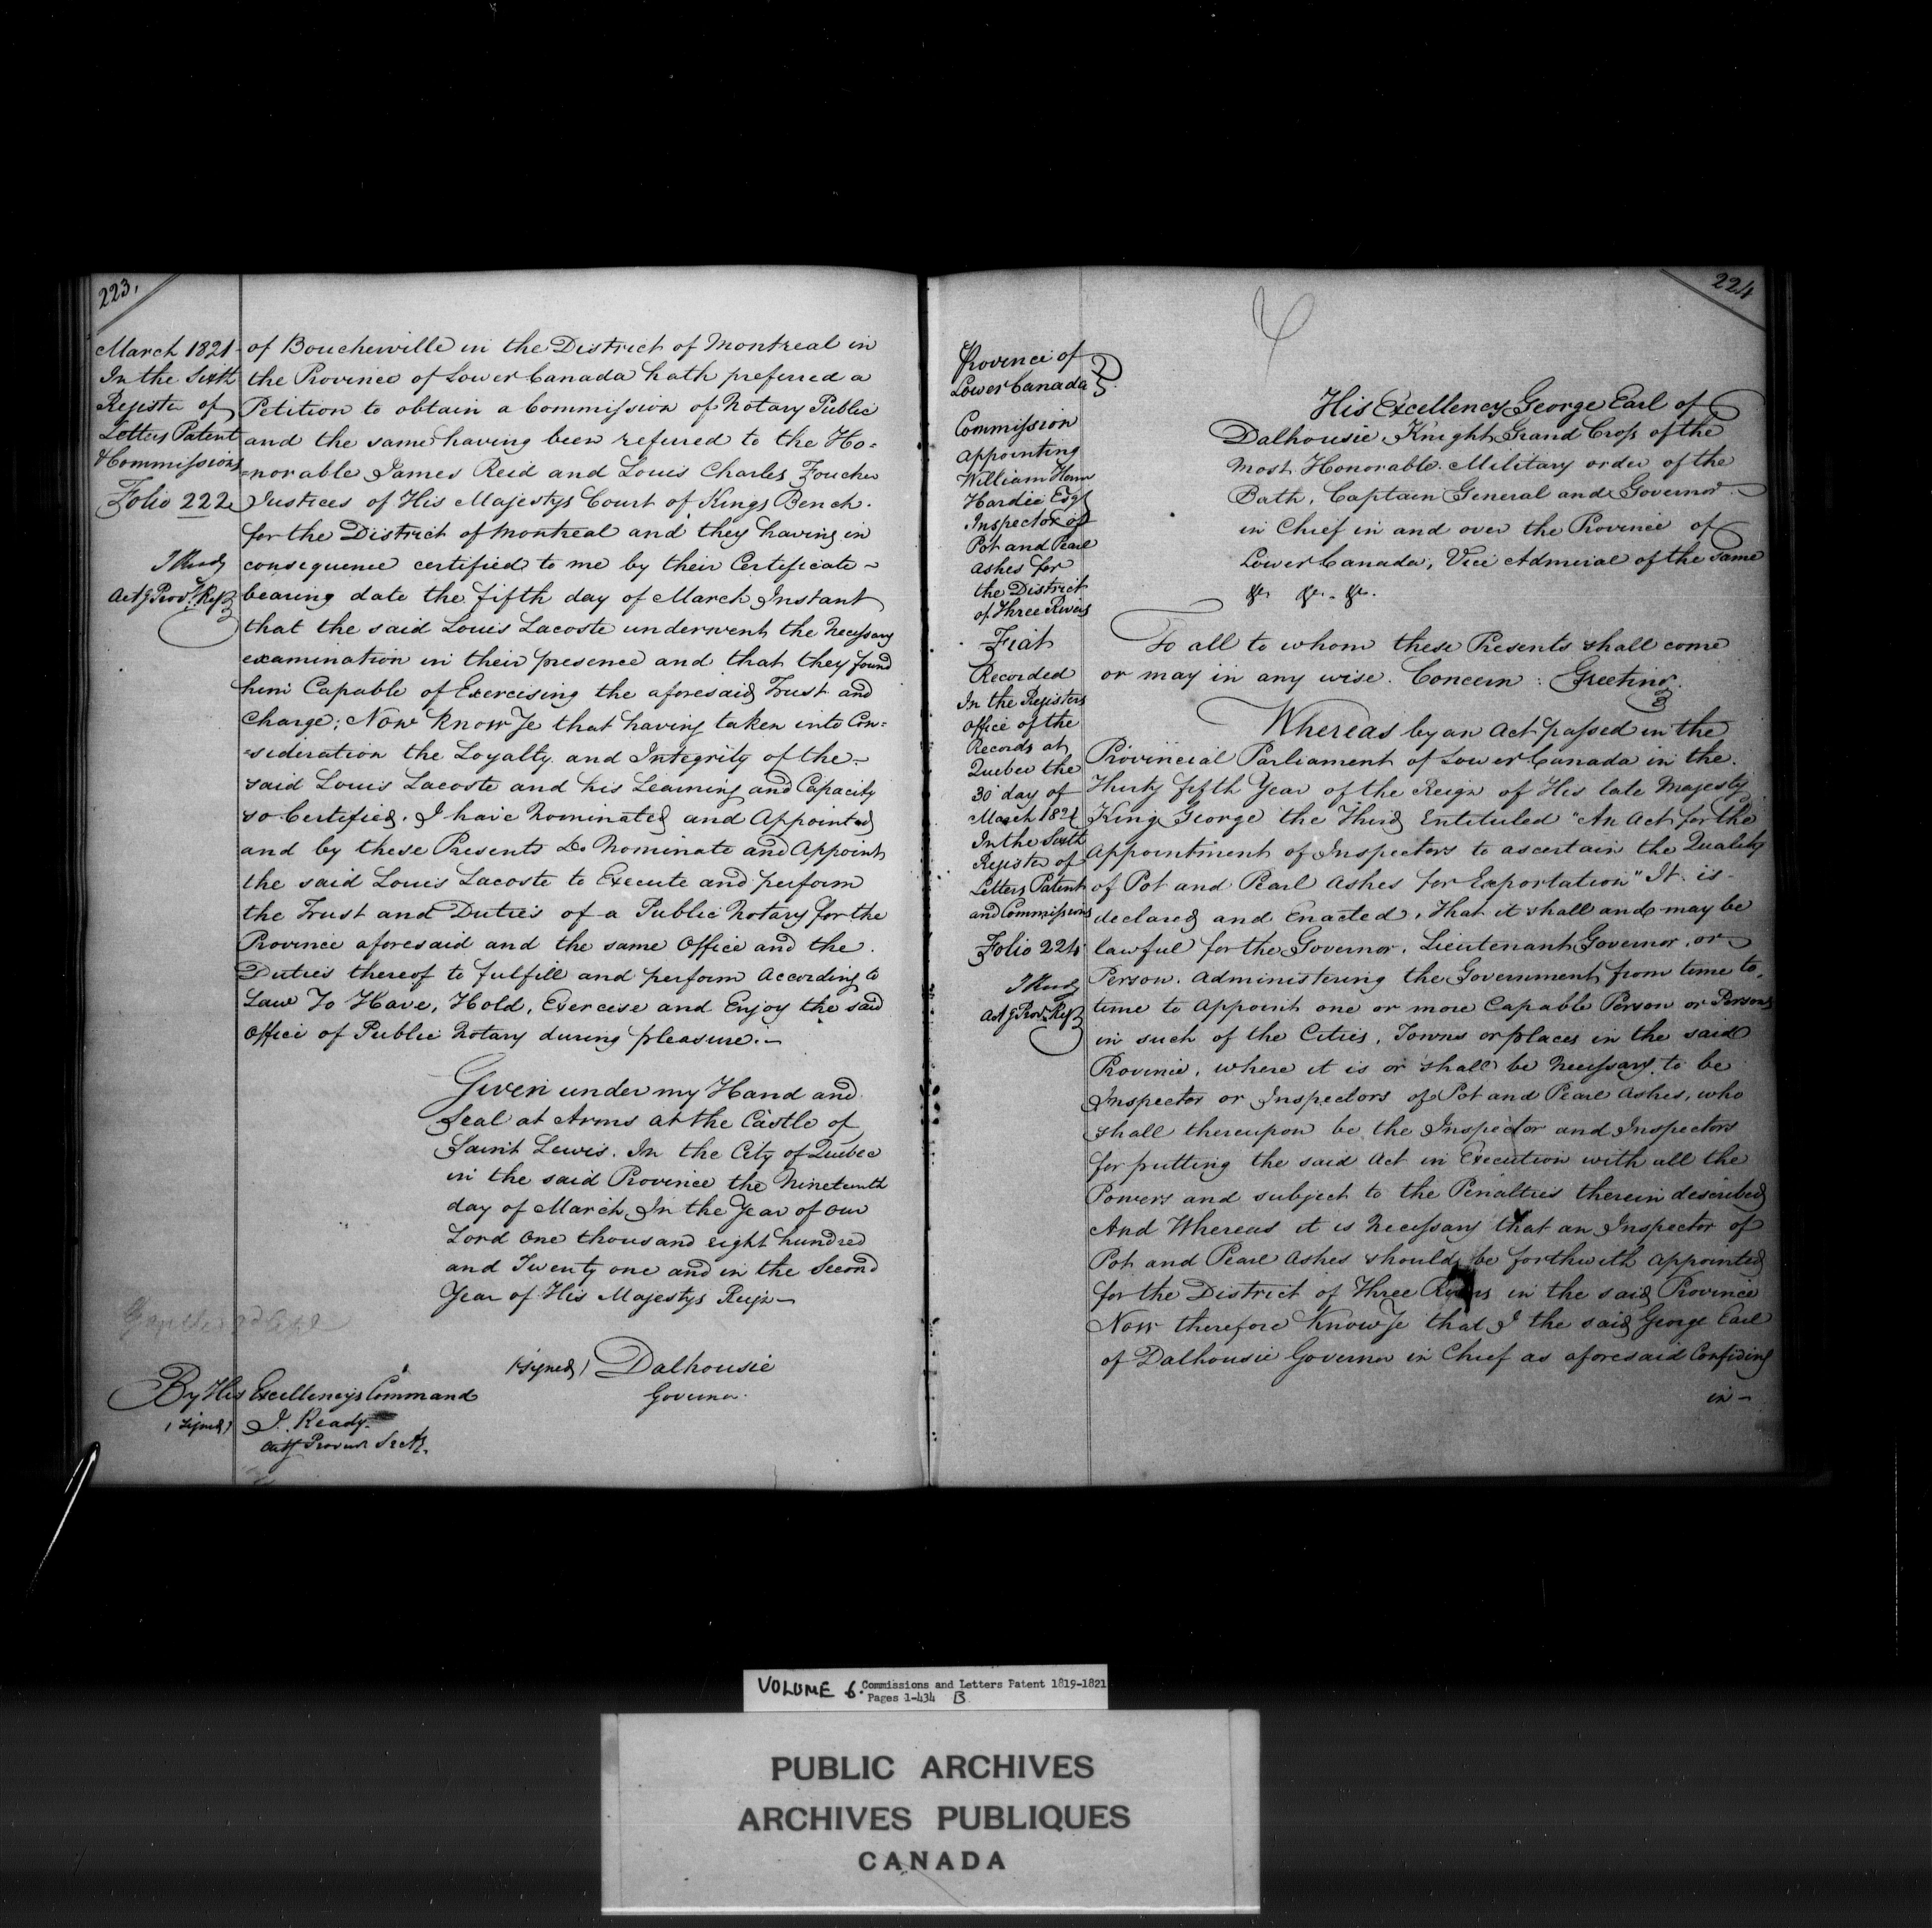 223.
March 1821
In the Sixth
Register of
Letters Patent
& Commissions
Folio 222
J Ready
Actg Provl. Regr
of Boucherville in the District of Montreal in
the Province of Lower Canada hath preferred a
Petition to obtain a Commission of Notary Public
and the same having been referred to the Ho=
=norable James Reid and Louis Charles Foucher
Justices of His Majestys Court of Kings Bench.
for the District of Montreal and they having in
consequence certified to me by their Certificate -
bearing date the fifth day of March Instant
that the said Louis Lacoste underwent the Necessary
examination in their presence and that they found
him Capable of Exercising the aforesaid Trust and
Charge; Now Know Ye that having taken into Con=
=sideration the Loyalty and Integrity of the -
said Louis Lacoste and his Learning and Capacity
so Certified. I have Nominated and Appointed
and by these Presents Do Nominate and Appoint
the said Louis Lacoste to Execute and perform
the Trust and Duties of a Public Notary for the
Province aforesaid and the same Office and the.
Duties thereof to fulfill and perform According to
Law To Have, Hold, Exercise and Enjoy the said
Office of Public Notary during pleasure. -
Given under my Hand and
Seal at Arms at the Castle of
Saint Lewis. In the City of Quebec
in the said Province the Nineteenth
day of March In the Year of our
Lord One thousand eight hundred
and Twenty one and in the Second
Year of His Majestys Reign -
(signed) Dalhousie
Governor.
By His Excellencys Command
(signed) J. Ready.
Actg Provin Secty.
224
Province of
Lower Canada
Commission
appointing
William
Hardie Esqr
Inspector of
Pot and Pearl
Ashes for
the District
of Three Rivers
Fiat
Recorded
In the Registers
Office of the
Records at
Quebec the
30 day of
March 1821
In the Sixth
Register of
Letters Patent
and Commissions
Folio 224
J Ready
Actg Provl. Regr
His Excellency George Earl of
Dalhousie, Knight Grand Cross of the
Most Honorable Military order of the
Bath, Captain General and Governor
in Chief in and over the Province of
Lower Canada, Vice Admiral of the Same
&c. &c. &c.
To all to whom these Presents shall come
or may in any wise. Concern: Greeting.
Whereas by an Act passed in the
Provincial Parliament of Lower Canada in the.
Thirty fifth Year of the Reign of His late Majesty
King George the Third Entituled "An Act for the
Appointment of Inspectors to ascertain the Quality
of Pot and Pearl Ashes for Exportation" It is -
declared and Enacted, that it shall and may be
lawful for the Governor, Lieutenant Governor, or
Person. Administering the Government from time to
time to Appoint one or more Capable Person or Persons
in such of the Cities, Towns or places in the said
Province, where it is or shall be Necessary to be
Inspector or Inspectors of Pot and Pearl Ashes, who
shall thereupon be the Inspector and Inspectors
for putting the said Act in Execution with all the
Powers and subject to the Penalties therein described
And Whereas it is Necessary that an Inspector of
Pot and Pearl Ashes should be forthwith Appointed
for the District of Three Rivers in the said Province
Now therefore Know Ye that I the said George Earl
of Dalhousie Governor in Chief as aforesaid Confiding
in -
VOLUME 6. Commissions and Letters Patent 1819-1821
Pages 1-434 B
PUBLIC ARCHIVES
ARCHIVES PUBLIQUES
CANADA